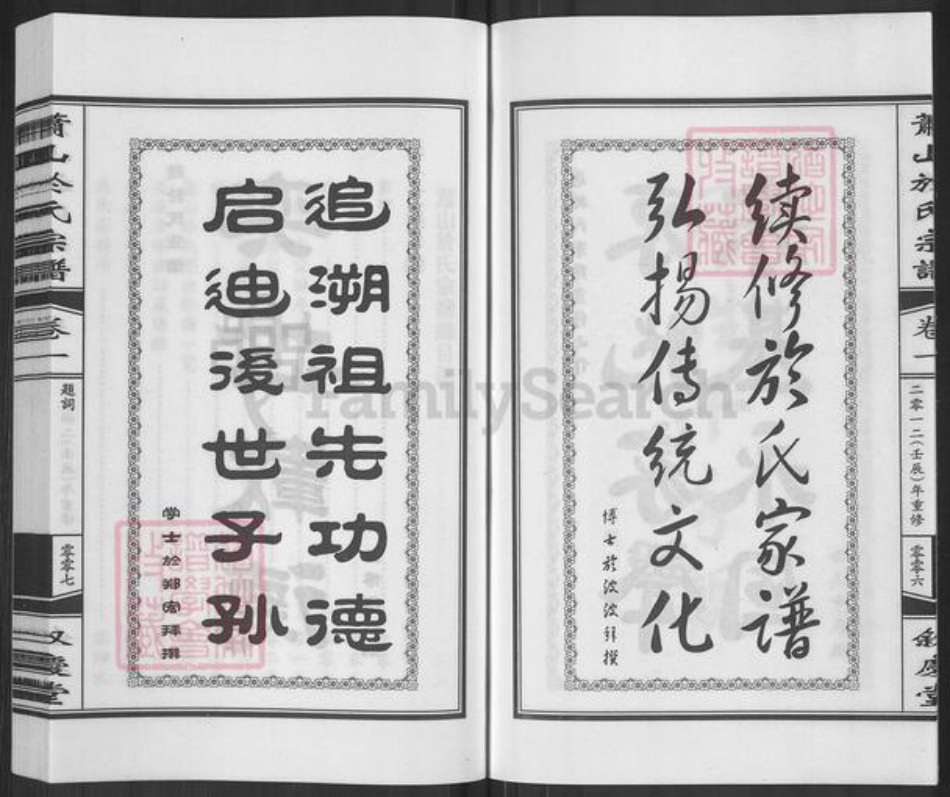 萧山於氏宗谱
卷一
二零一二（壬辰）年重修
零零六
叙庆堂
续修於氏家谱
弘扬传统文化
博士於波波拜撰
追溯祖先功德
启迪後世子孙
学士於郑宏拜撰
萧山於氏宗谱
卷一
题词
零零七
叙庆堂
FamilySearch